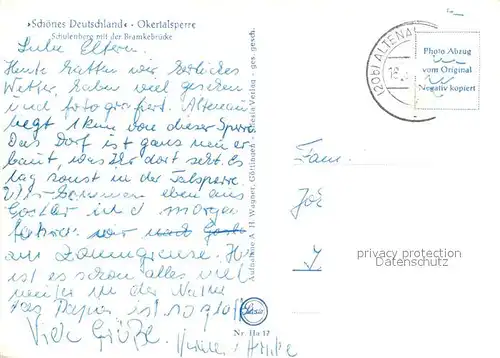 »Schönes Deutschland« - Okertalsperre
Schulenberg mit der Bramkebrücke
Liebe Eltern.
Heute hatten wir herrliches
Wetter, haben viel gesehen
und fotografiert. Altenau
liegt 1 km von dieser Sperre
Das Dorf ist ganz neu er
baut, was Ihr dort seht. Es
lag sonst in der Talsperre.
Wir kommen eben aus
Goslar und morgen
fahren wir nach
zur Zonengrenze. Hier
ist es schon alles viel
weiter in der Natur
das Papier ist so glatt
Viele Grüße.
Aufnahme A. H. Wagner, Göttingen - Slesia Verlag - ges. gesch.
Slesia
Nr. Ha 17
(20b) ALTENAU
18.
Photo Abzug
vom Original
Negativ kopiert
Fam.
privacy protection
Datenschutz